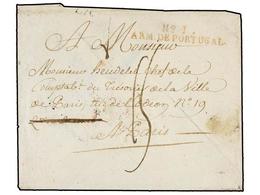 No. 1
ARM. DE PORTUGAL.
A Monsieur
Monsieur heudelet Chef de la
Comptabté. du Trésor de la Ville
de Paris, de Lodeon No. 19
A Paris